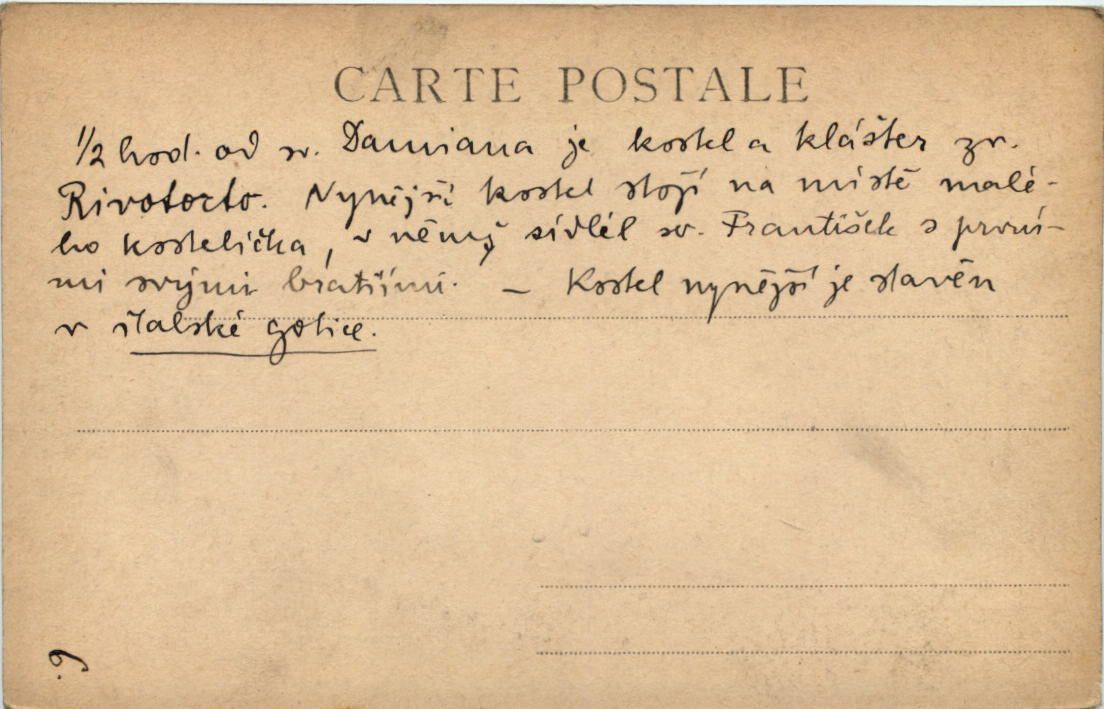 CARTE POSTALE
1/2 hod. od sv. Damiana je kostel a klášter zv.
Rivotorto. Nynější kostel stojí na místě malé-
ho kostelíčka, v němž sídlel sv. František s první-
mi svými bratřími. — Kostel nynější je stavěn
v italské gotice.